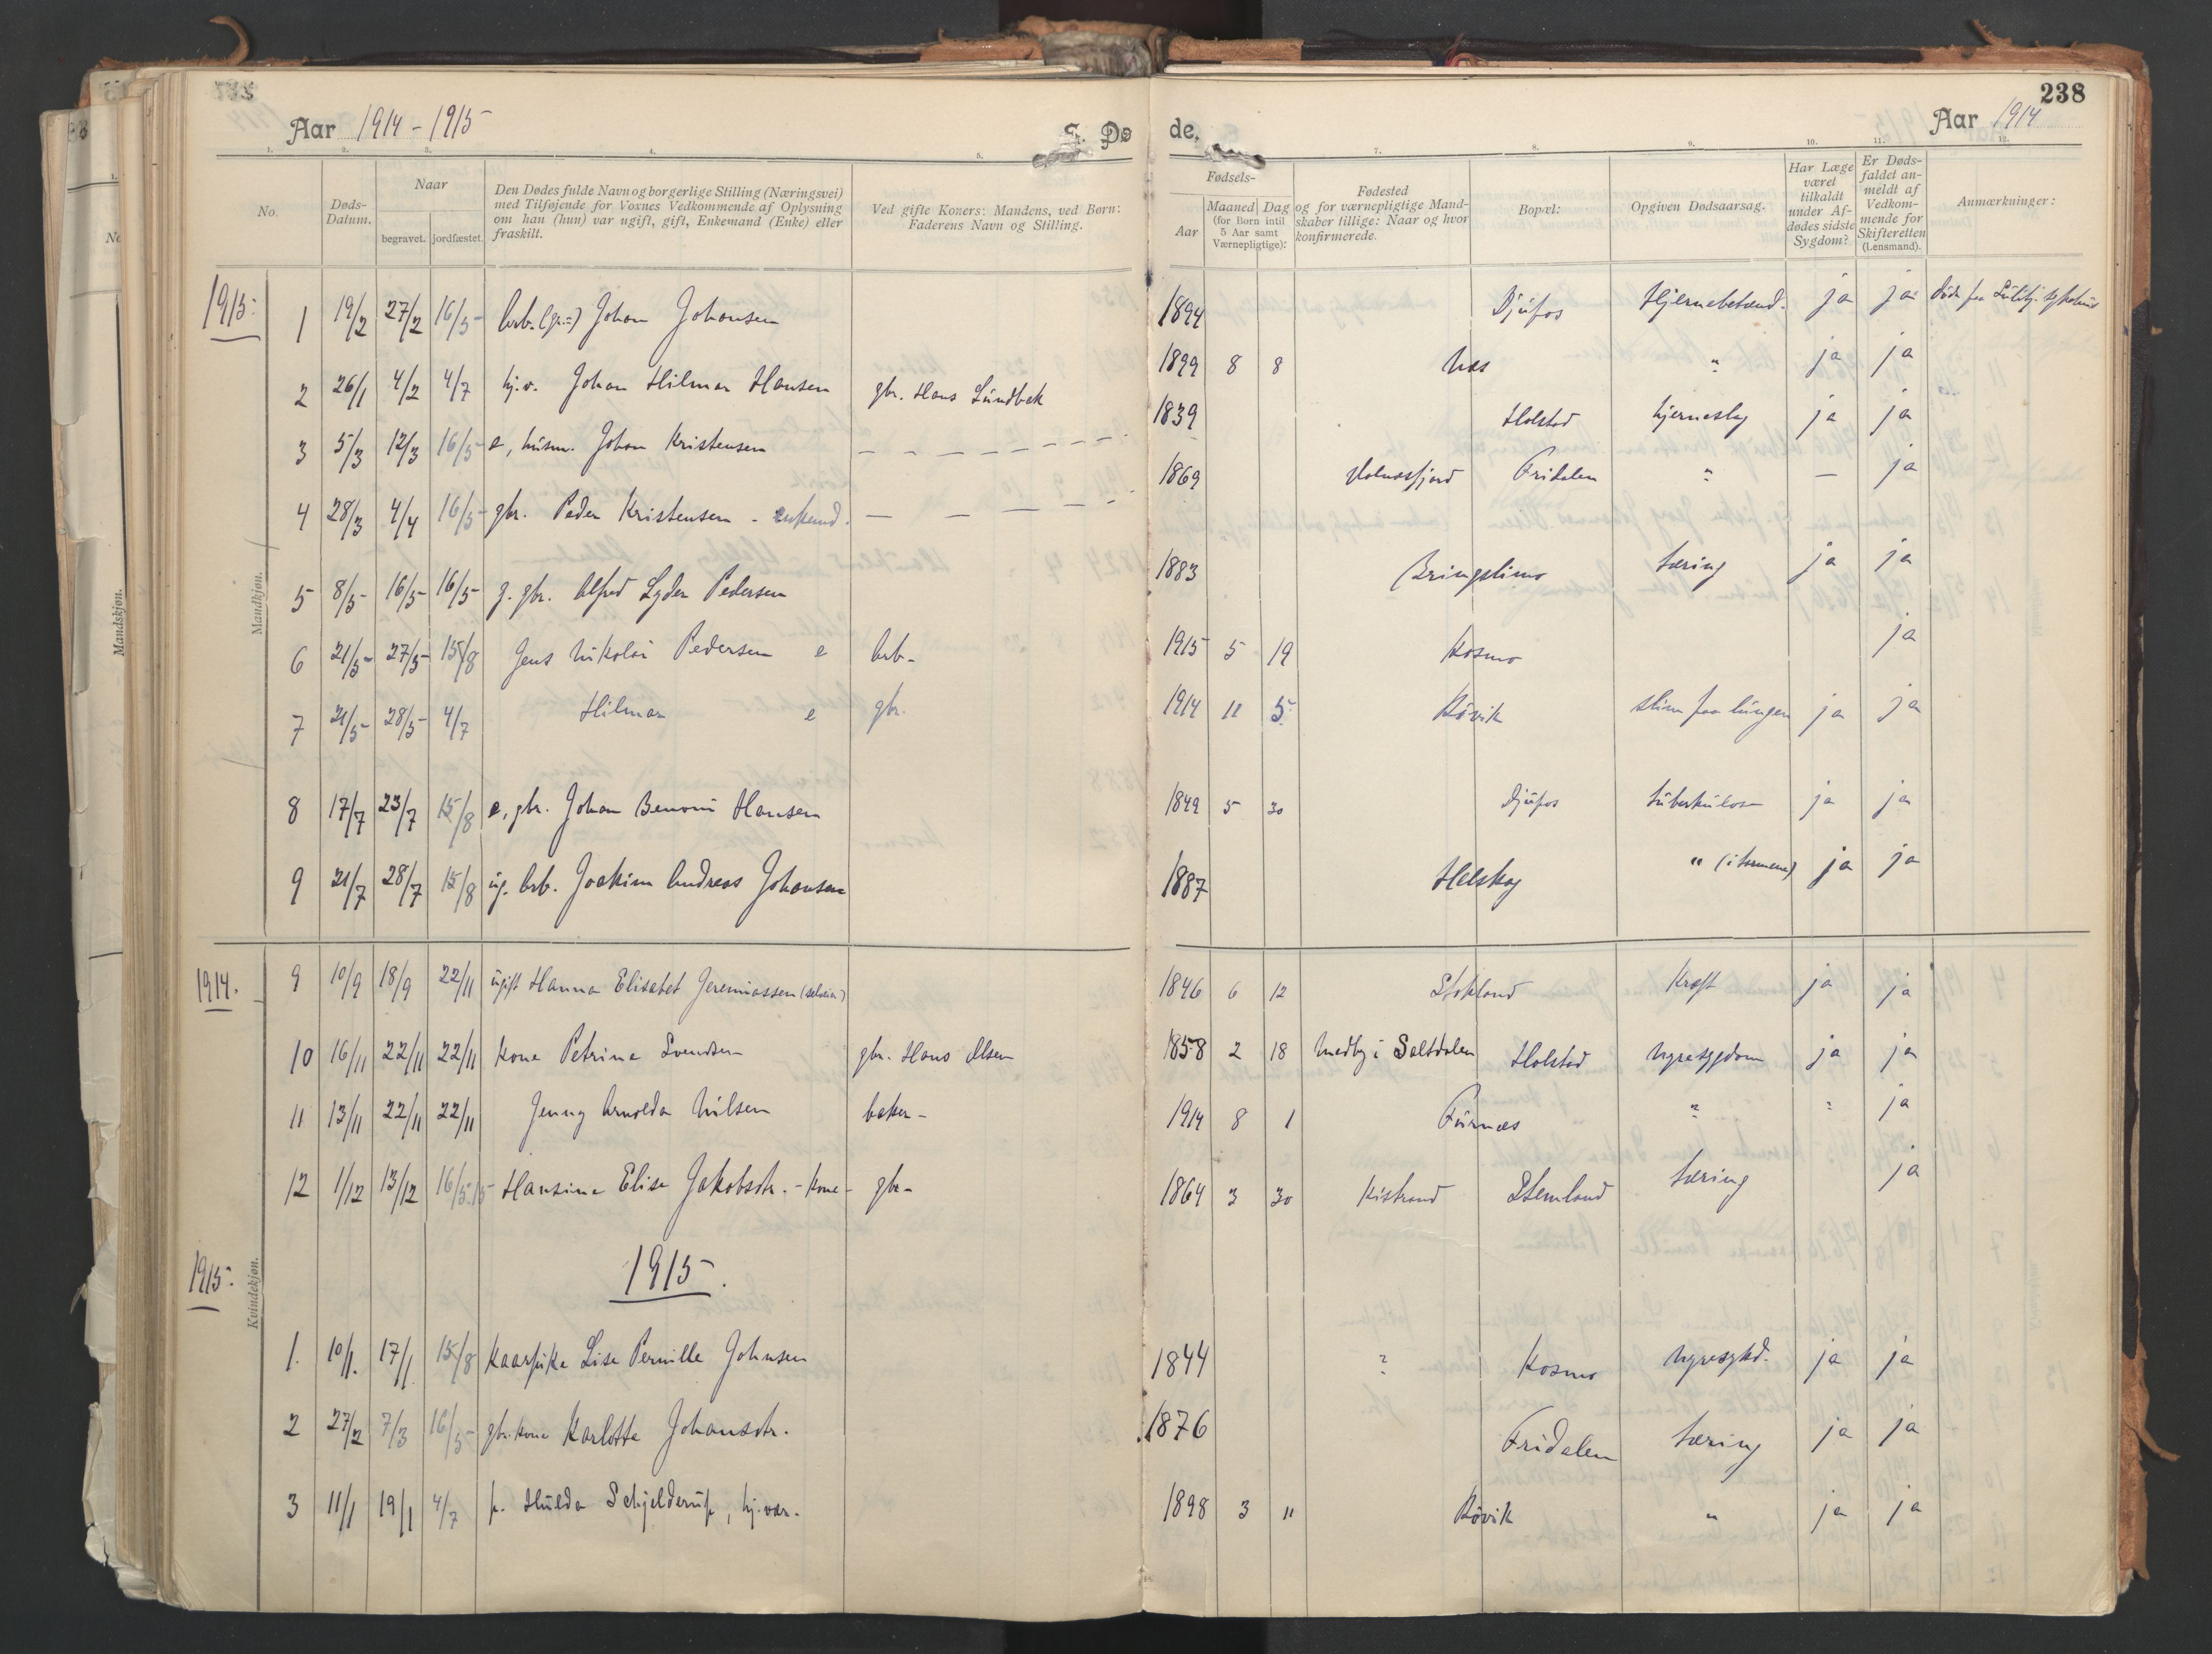 238
Aar 1914-1915
S. Dø
de.
Aar 1914
1. 2. 3. 4. 5.
7. 8. 9. 10. 11. 12.
No.
Døds-Datum.
Naar
begravet. jordfæstet.
Den Dødes fulde Navn og borgerlige Stilling (Næringsvei)
med Tilføjende for Voxnes Vedkommende af Oplysning
om han (hun) var ugift, gift, Enkemand (Enke) eller
fraskilt.
Ved gifte Koners: Mandens, ved Børn:
Faderens Navn og Stilling.
Fødsels-
Aar
Maaned Dag
(for Børn intil
5 Aar samt
Værnepligtige):
Fødested
og for værnepligtige Mand-
skaber tillige: Naar og hvor
konfirmerede.
Bopæl:
Opgiven Dødsaarsag.
Har Læge
været
tilkaldt
under Af-
dødes sidste
Sygdom?
Er Døds-
faldet an-
meldt af
Vedkom-
mende for
Skifteretten
(Lensmand).
Anmærkninger:
Mandkjøn.
1915:
1 19/2 27/2 16/5 Johan Johansen 1894 Djúpos Hjernebetænd. ja ja
2 26/1 4/2 4/7 hj.v. Johan Hilmar Hansen gbr. Hans Lúndbak 1899 8 8 Næs " ja ja
3 5/3 12/3 16/5 e, húsm. Johan Kristensen 1839 Holstad hjernesly ja ja
4 28/3 4/4 16/5 gbr. Peder Kristensen - enkemd. — 1869 Valnesfjord Fridalen " — ja
5 8/5 16/5 16/5 g. gbr. Alfred Lyder Pedersen 1883 Bringslimo tæring ja ja
6 21/5 27/5 15/8 Jens Nikolai Pedersen e arb- 1915 5 19 Kosmo ja
7 21/5 28/5 4/7 Hilmar e gbr. 1914 11 5 Røvik slim paa lúngen ja ja
8 17/7 23/7 15/8 e, gbr. Johan Benoni Hansen 1849 5 30 Djúpos túberkúlose ja ja
9 21/7 28/7 15/8 úg. arb. Joakim Andreas Johansen 1887 Helskog " (i tarmene) ja ja
Kvindekjøn.
1914.
9 10/9 18/9 22/11 úgift Hanna Elisabet Jeremiassen (selveier) 1846 6 12 Stokland Kræft ja ja
10 16/11 22/11 22/11 Kone Petrine Svendsen gbr. Hans Olsen 1858 2 18 Medby i Saltdalen Holstad nyresygdom ja ja
11 13/11 22/11 22/11 Jenny Arnolda Nilsen baker- 1914 8 1 Fúrnes " " ja
12 1/12 13/12 16/5.15 Hansine Elise Jakobsdtr. - kone - gbr- 1864 3 30 Kistrand Stemland tæring ja
1915.
1915:
1. 10/1. 17/1 15/8 Kaarpike Lise Pernille Johnsen 1844 ? Kosmo nyresykd. ja ja
2 27/2 7/3 16/5 gbr.kone Karlotte Johansdtr. 1876 Fridalen tæring ja ja
3 11/1 19/1 4/7 p. Húlda Schjelderúp, hj.vær. 1898 3 11 Røvik " ja ja